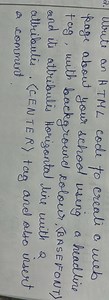 Write an HTML code to create a web
page about your school using a headline
tag, with background colour (BASEFONT)
and its attributes Horizontal line with 2
attributes. (CENTER) tag and also insert
a comment